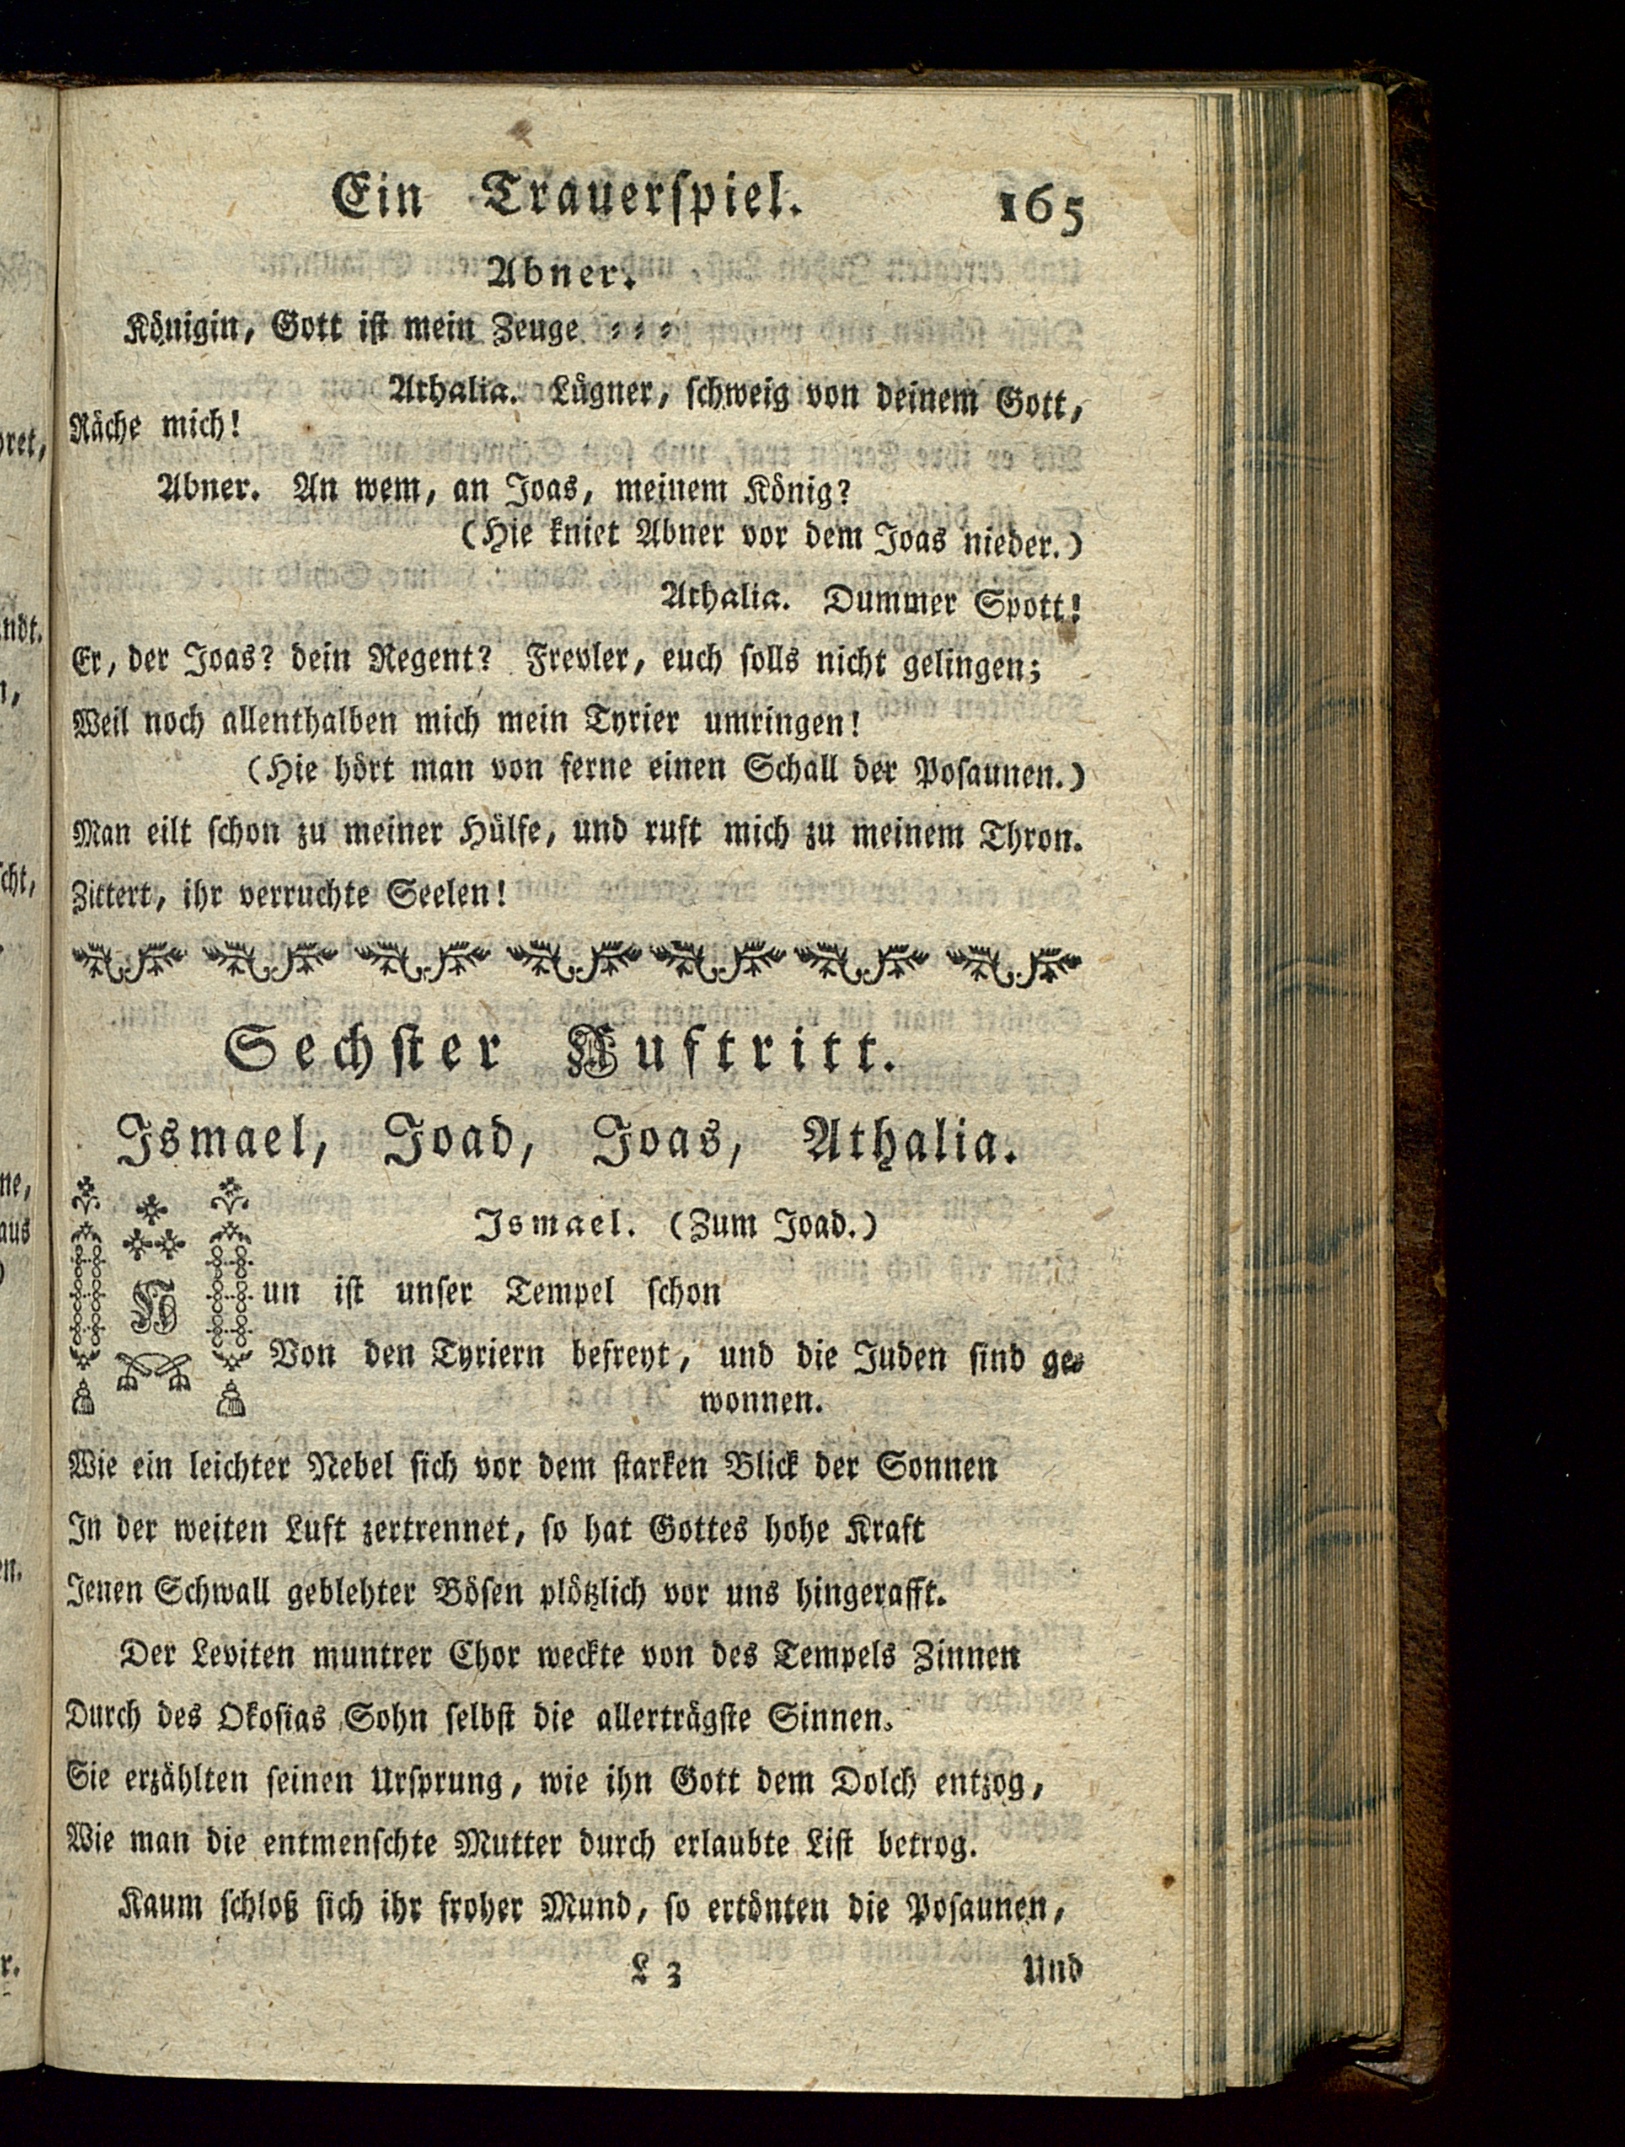 Ein Trauerſpiel. 165
Abner.
Königin, Gott iſt mein Zeuge ⸗ ⸗ ⸗
Athalia. Lügner, ſchweig von deinem Gott,
Räche mich!
Abner. An wem, an Joas, meinem König?
(Hie kniet Abner vor dem Joas nieder.)
Athalia. Dummer Spott!
Er, der Joas? dein Regent? Frevler, euch ſolls nicht gelingen;
Weil noch allenthalben mich mein Tyrier umringen!
(Hie hört man von ferne einen Schall der Poſaunen.)
Man eilt ſchon zu meiner Hülfe, und ruft mich zu meinem Thron.
Zittert, ihr verruchte Seelen!
Sechſter Auftritt.
Ismael, Joad, Joas, Athalia.
Ismael. (Zum Joad.)
Nun iſt unſer Tempel ſchon
Von den Tyriern befreyt, und die Juden ſind ge⸗
wonnen.
Wie ein leichter Nebel ſich vor dem ſtarken Blick der Sonnen
In der weiten Luft zertrennet, ſo hat Gottes hohe Kraft
Jenen Schwall geblehter Böſen plötzlich vor uns hingerafft.
Der Leviten muntrer Chor weckte von des Tempels Zinnen
Durch des Okoſias Sohn ſelbſt die allerträgſte Sinnen.
Sie erzählten ſeinen Urſprung, wie ihn Gott dem Dolch entzog,
Wie man die entmenſchte Mutter durch erlaubte Liſt betrog.
Kaum ſchloß ſich ihr froher Mund, ſo ertönten die Poſaunen,
L 3 Und